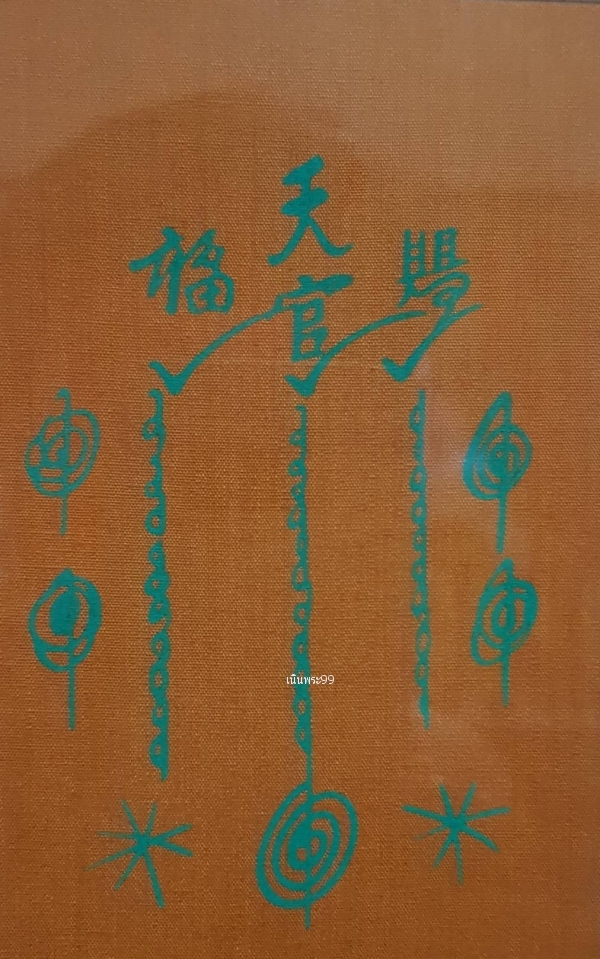 天
福 官 賜
เนินพระ99